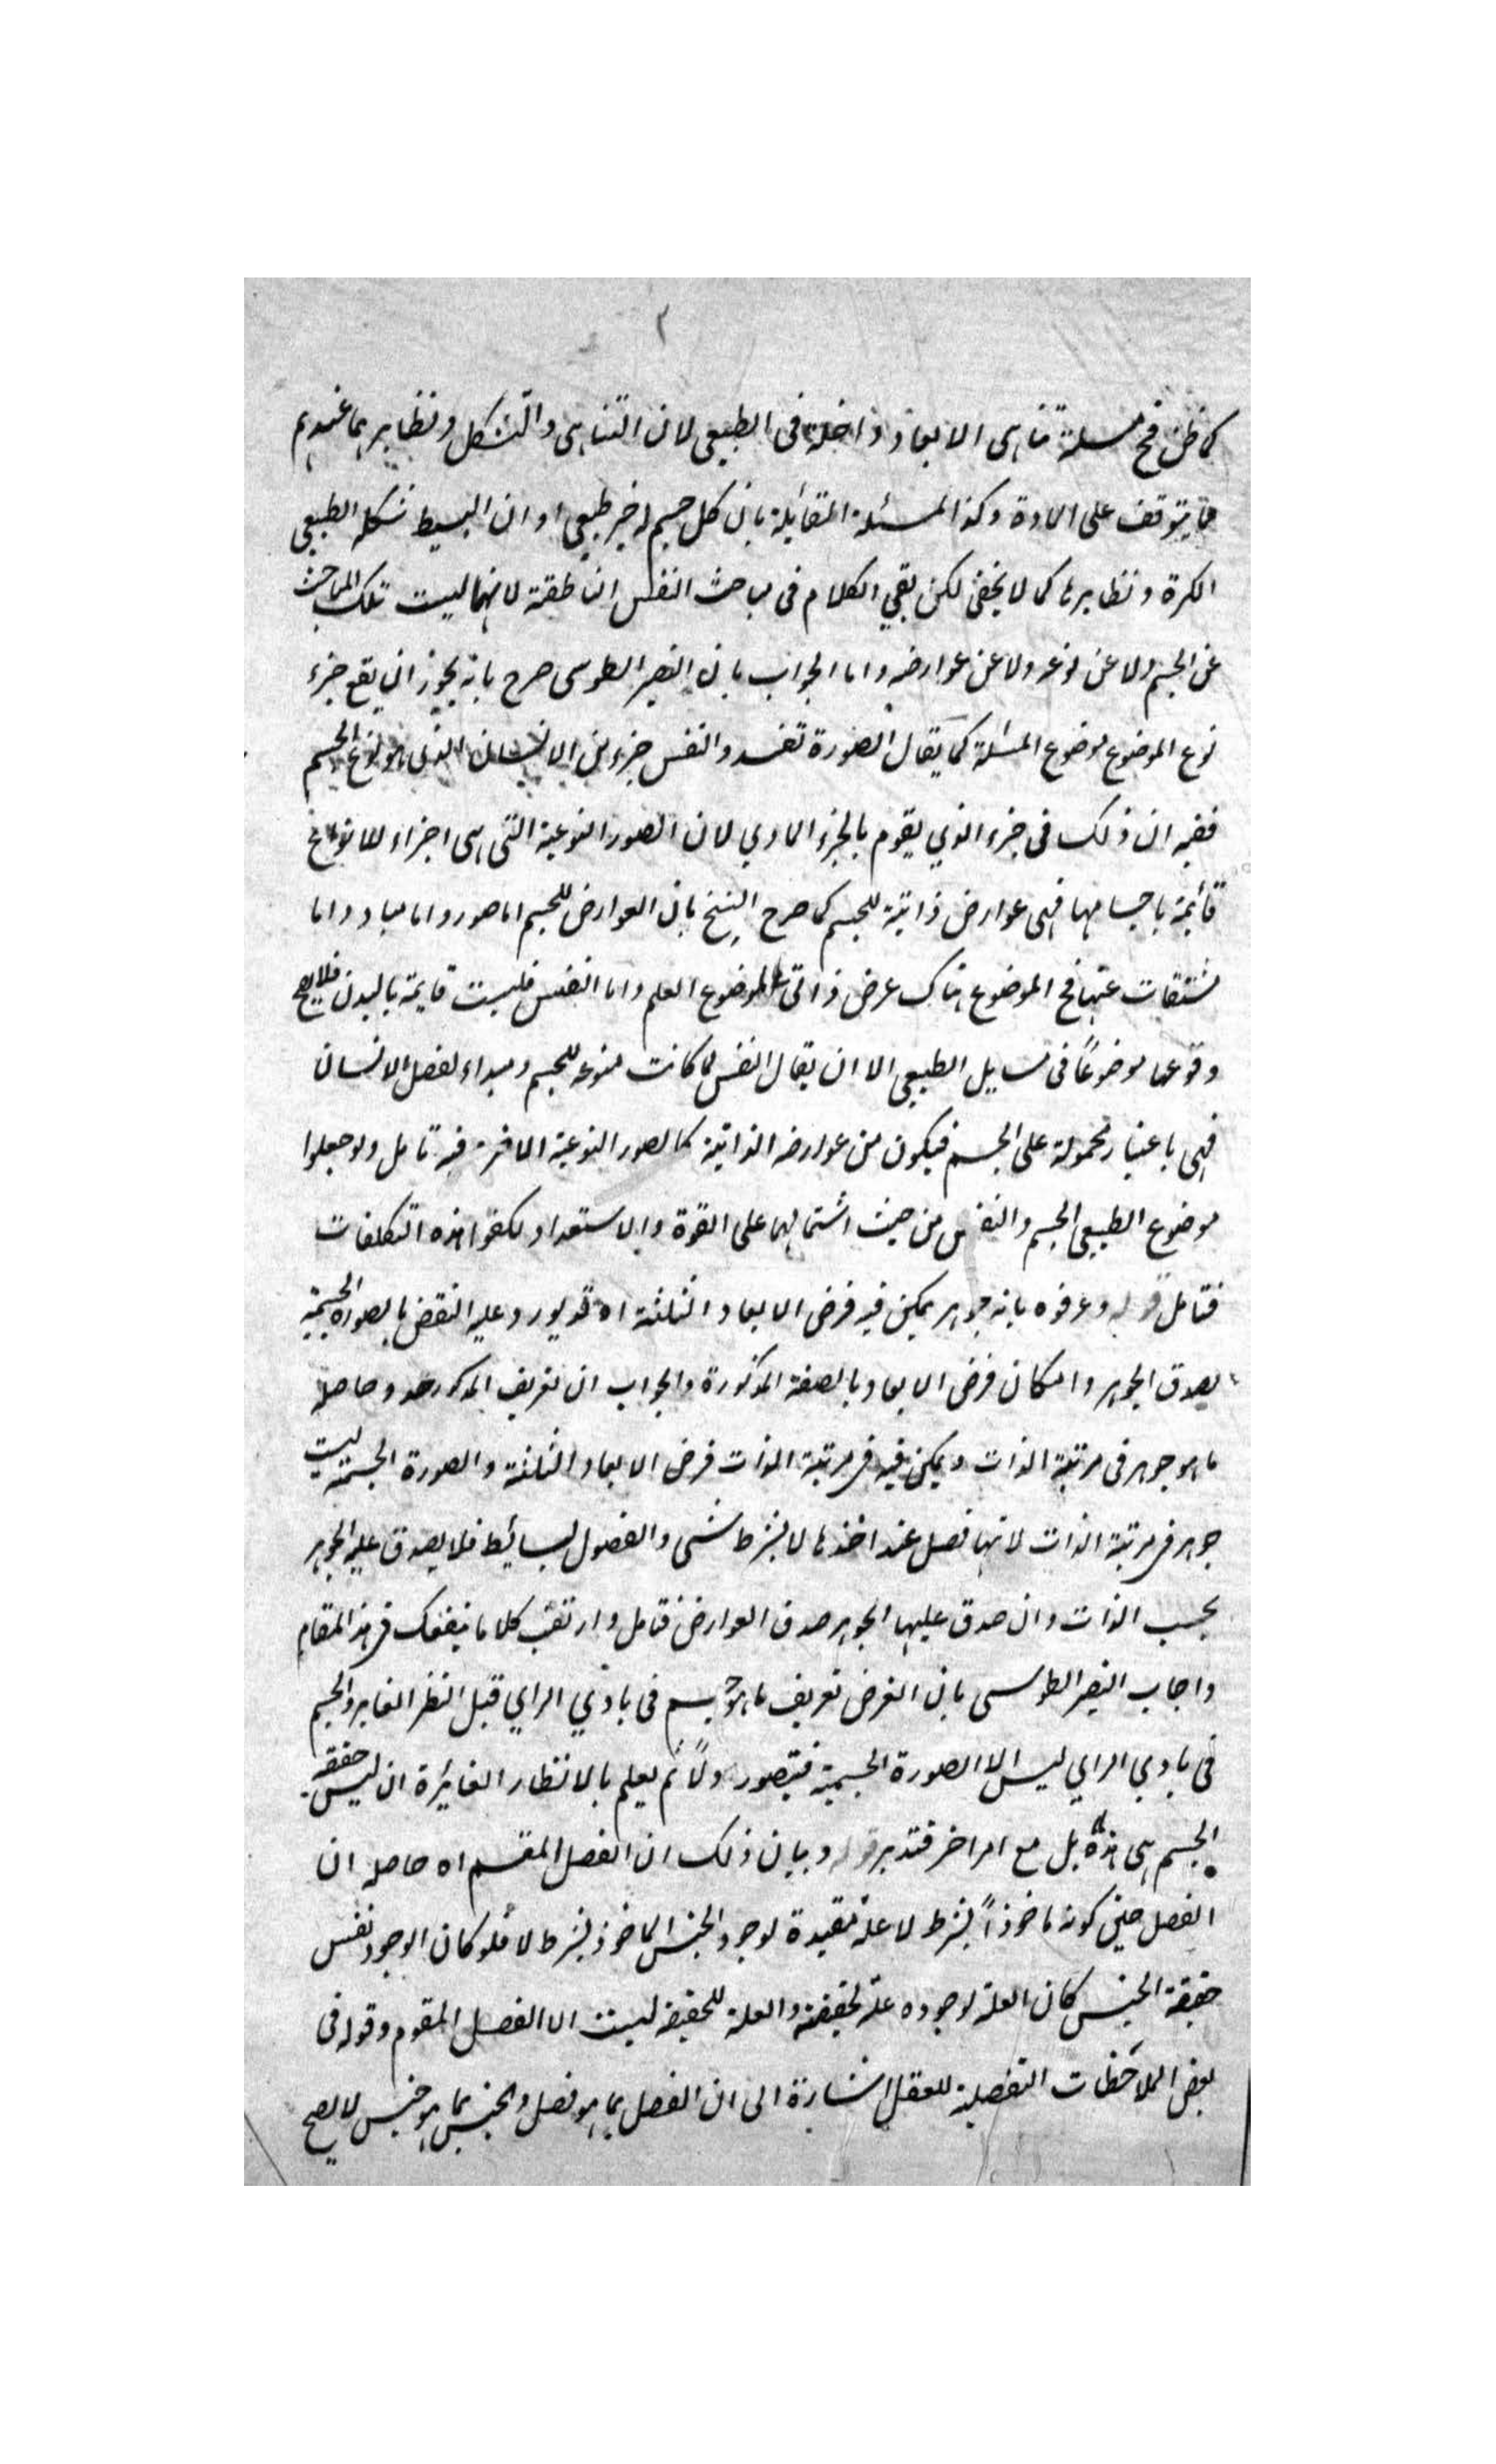 ٢
كما ظن فح مسئلة تناهى الابعاد داخلة فى الطبيعى لان التناهى والتشكل ونظايرهما عندهم
مما يتوقف على المادة وكذا المسئلة القائلة بان كل جسم له حيز طبيعى او ان البسيط شكله الطبيعى
الكرة ونظايرها كما لا يخفى لكن بقي الكلام فى مباحث النفس الناطقة لانها ليست تلك المباحث
عن الجسم ولا عن نوعه ولا عن عوارضه واما الجواب بان النصير الطوسى صرح بانه يجوز ان يقع جزء
نوع الموضوع موضوع المسئلة كما يقال الصورة تفسد والنفس جزء من الانسان الذى هو نوع الجسم
ففيه ان ذلك فى جزء الذي يقوم بالجزء المادي لان الصور النوعية التى هى اجزاء للانواع
قائمة باجسامها فهى عوارض ذاتية للجسم كما صرح الشيخ بان العوارض للجسم اما صور واما مباد واما
مشتقات عنها فح الموضوع هناك عرض ذاتى لموضوع العلم واما النفس فليست قايمة بالبدن فلا يصح
وقوعها موضوعاً فى مسايل الطبيعى الا ان يقال النفس لما كانت منوعه للجسم ومبداء لفصل الانسان
فهى باعتبار محمولة على الجسم فيكون من عوارضه الذاتية كالصور النوعية الاخر فيه تامل ولو جعلوا
موضوع الطبيعى الجسم والنفس من حيث اشتمالهما على القوة والاستعداد لكفوا هذه التكلفات
فتامل قوله وعرفوه بانه جوهر يمكن فيه فرض الابعاد الثلثة اه قد يورد عليه النقض بالصورة الجسمية
لصدق الجوهر وامكان فرض الابعاد بالصفة المذكورة والجواب ان تعريف المذكور حد وحاصله
ما هو جوهر فى مرتبة الذات ويمكن فيه فى مرتبة الذات فرض الابعاد الثلثة والصورة الجسمية ليست
جوهر فى مرتبة الذات لانها فصل عند اخذها لا بشرط شى والفصول بسائط فلا يصدق عليه الجوهر
بحسب الذات وان صدق عليها الجوهر صدق العوارض فتامل وارتقب كلاما ينفعك فى هذا المقام
واجاب النصير الطوسى بان الغرض تعريف ما هو جسم فى بادي الراي قبل النظر الغاير والجسم
فى بادي الراي ليس الا الصورة الجسمية فيتصور اولاً ثم يعلم بالانظار الغائرة ان ليس حقيقة
الجسم هى هذه بل مع امر اخر فتدبر قوله وبيان ذلك ان الفصل المقسم اه حاصله ان
الفصل حين كونه ماخوذاً بشرط لا علة مفيدة لوجود الجنس الماخوذ بشرط لا فلو كان الوجود نفس
حقيقة الجنس كان العلة لوجوده علة لحقيقته والعلة للحقيقة ليست الا الفصل المقوم وقوله فى
بعض الملاحظات التفصيلية للعقل اشارة الى ان الفصل بما هو فصل والجنس بما هو جنس لا يصح